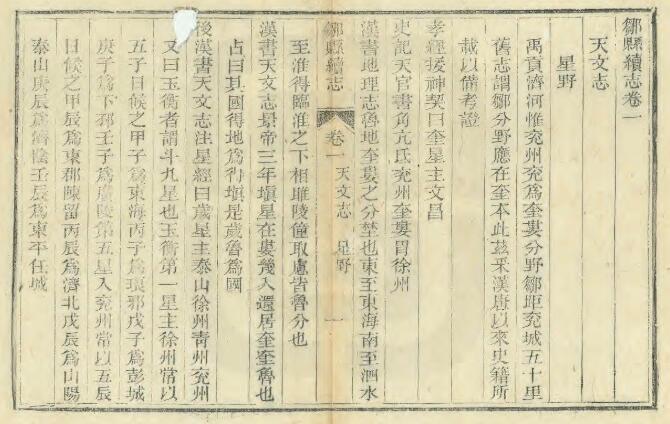 鄒縣續志卷一
天文志
星野
禹貢濟河惟兖州兖爲奎婁分野鄒距兖城五十里
舊志謂鄒分野應在奎本此茲采漢唐以來史籍所
載以備考證
孝經援神契曰奎星主文昌
史記天官書角亢氐兖州奎婁胃徐州
漢書地理志魯地奎婁之分埜也東至東海南至泗水
鄒縣續志
卷一 天文志 星野 一
至淮得臨淮之下相睢陵僮取慮皆魯分也
漢書天文志景帝三年塡星在婁幾入還居奎奎魯也
占曰其國得地爲得塡是歲魯爲國
後漢書天文志注星經曰歲星主泰山徐州青州兖州
又曰玉衡者謂斗九星也玉衡第一星主徐州常以
五子日候之甲子爲東海丙子爲琅邪戊子爲彭城
庚子爲下邳壬子爲廣陵第五星入兖州常以五辰
日候之甲辰爲東郡陳留丙辰爲濟北戊辰爲山陽
泰山庚辰爲濟陰壬辰爲東平任城